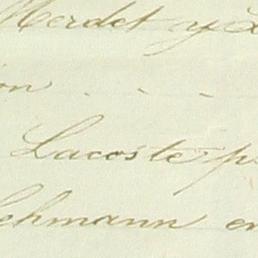 Merdet y
on - - -
Lacoste p
Lehmann en